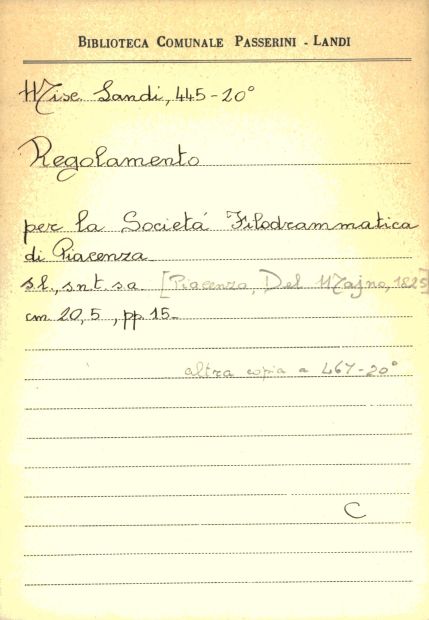 BIBLIOTECA COMUNALE PASSERINI - LANDI
Misc. Landi, 445-20°
Regolamento
per la Societá Filodrammatica
di Piacenza
s.l., s.n.t. s.a. [Piacenza, Del Majno, 1825]
cm 20,5, pp. 15-
altra copia a 467-20°
C